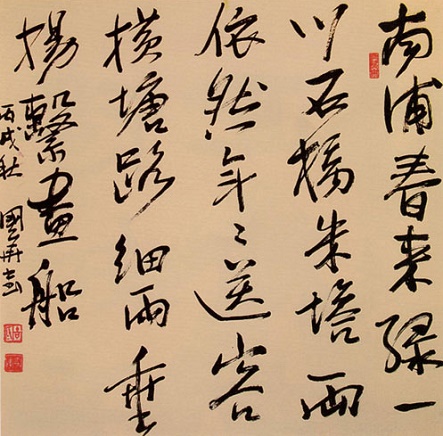 南浦春来緑一
川石橋朱塔兩
依然年〻送客
橫塘路細雨垂
楊繫畫船
丙戌秋 國